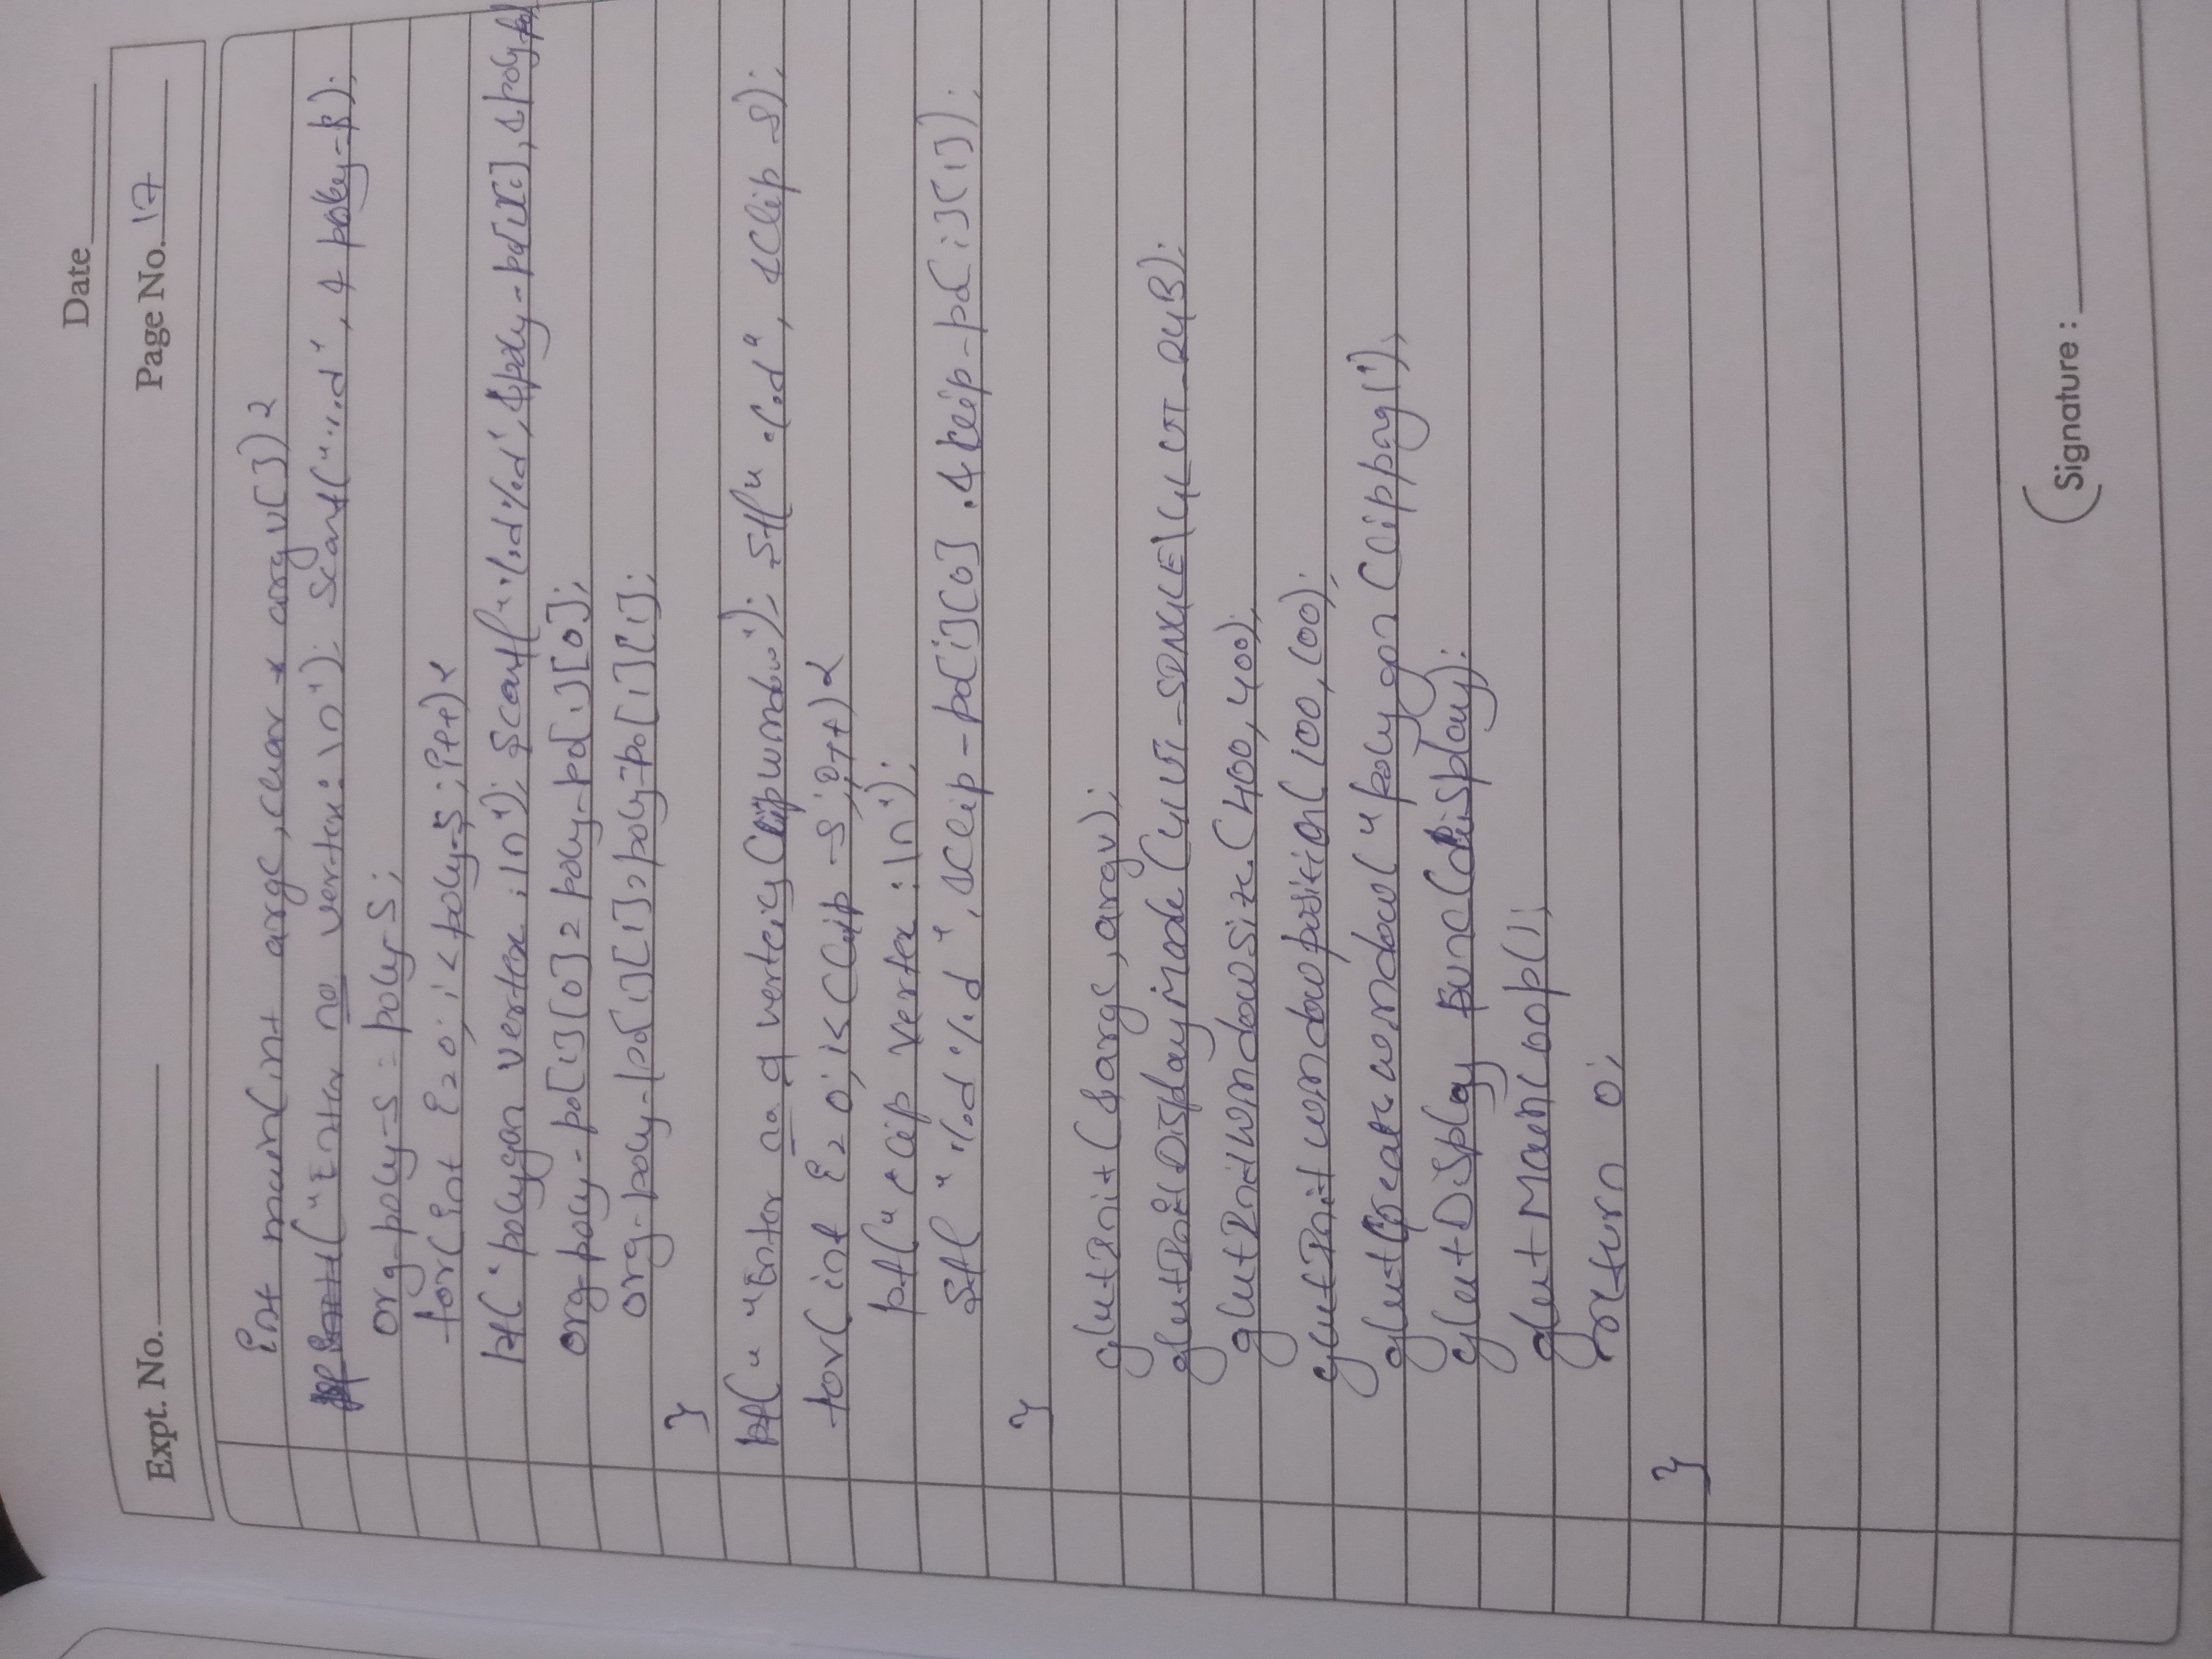 Date
Expt. No. Page No. 17
int main(int argc, char * argv[]) {
("Enter no vertex: \n"); scanf("%d", & poly-s);
org-poly-s = poly-s;
for(int i=0; i<poly-s; i++) {
pf("polygon vertex: \n"); scanf("%d%d", &poly-po[i][0], &poly-po
org-poly-po[i][0] = poly-po[i][0];
org-poly-po[i][1] = poly-po[i][1];
}
pf("Enter no of verticy Clip window"); sf("%d", &Clip-s);
for(int i=0; i<Clip-s; i++) {
pf("clip vertex: \n");
sf("%d%d", &Clip-po[i][0], &Clip-po[i][1]);
}
glutInit(&argc, argv);
glutInitDisplayMode(GLUT-SINGLE|GLUT-RGB);
glutInitWindowSize(400, 400);
glutInitWindowposition(100, 100);
glutCreatewindow("polygon Clipping");
glutDisplay Func(display);
glutMainLoop();
return 0;
}
Signature :